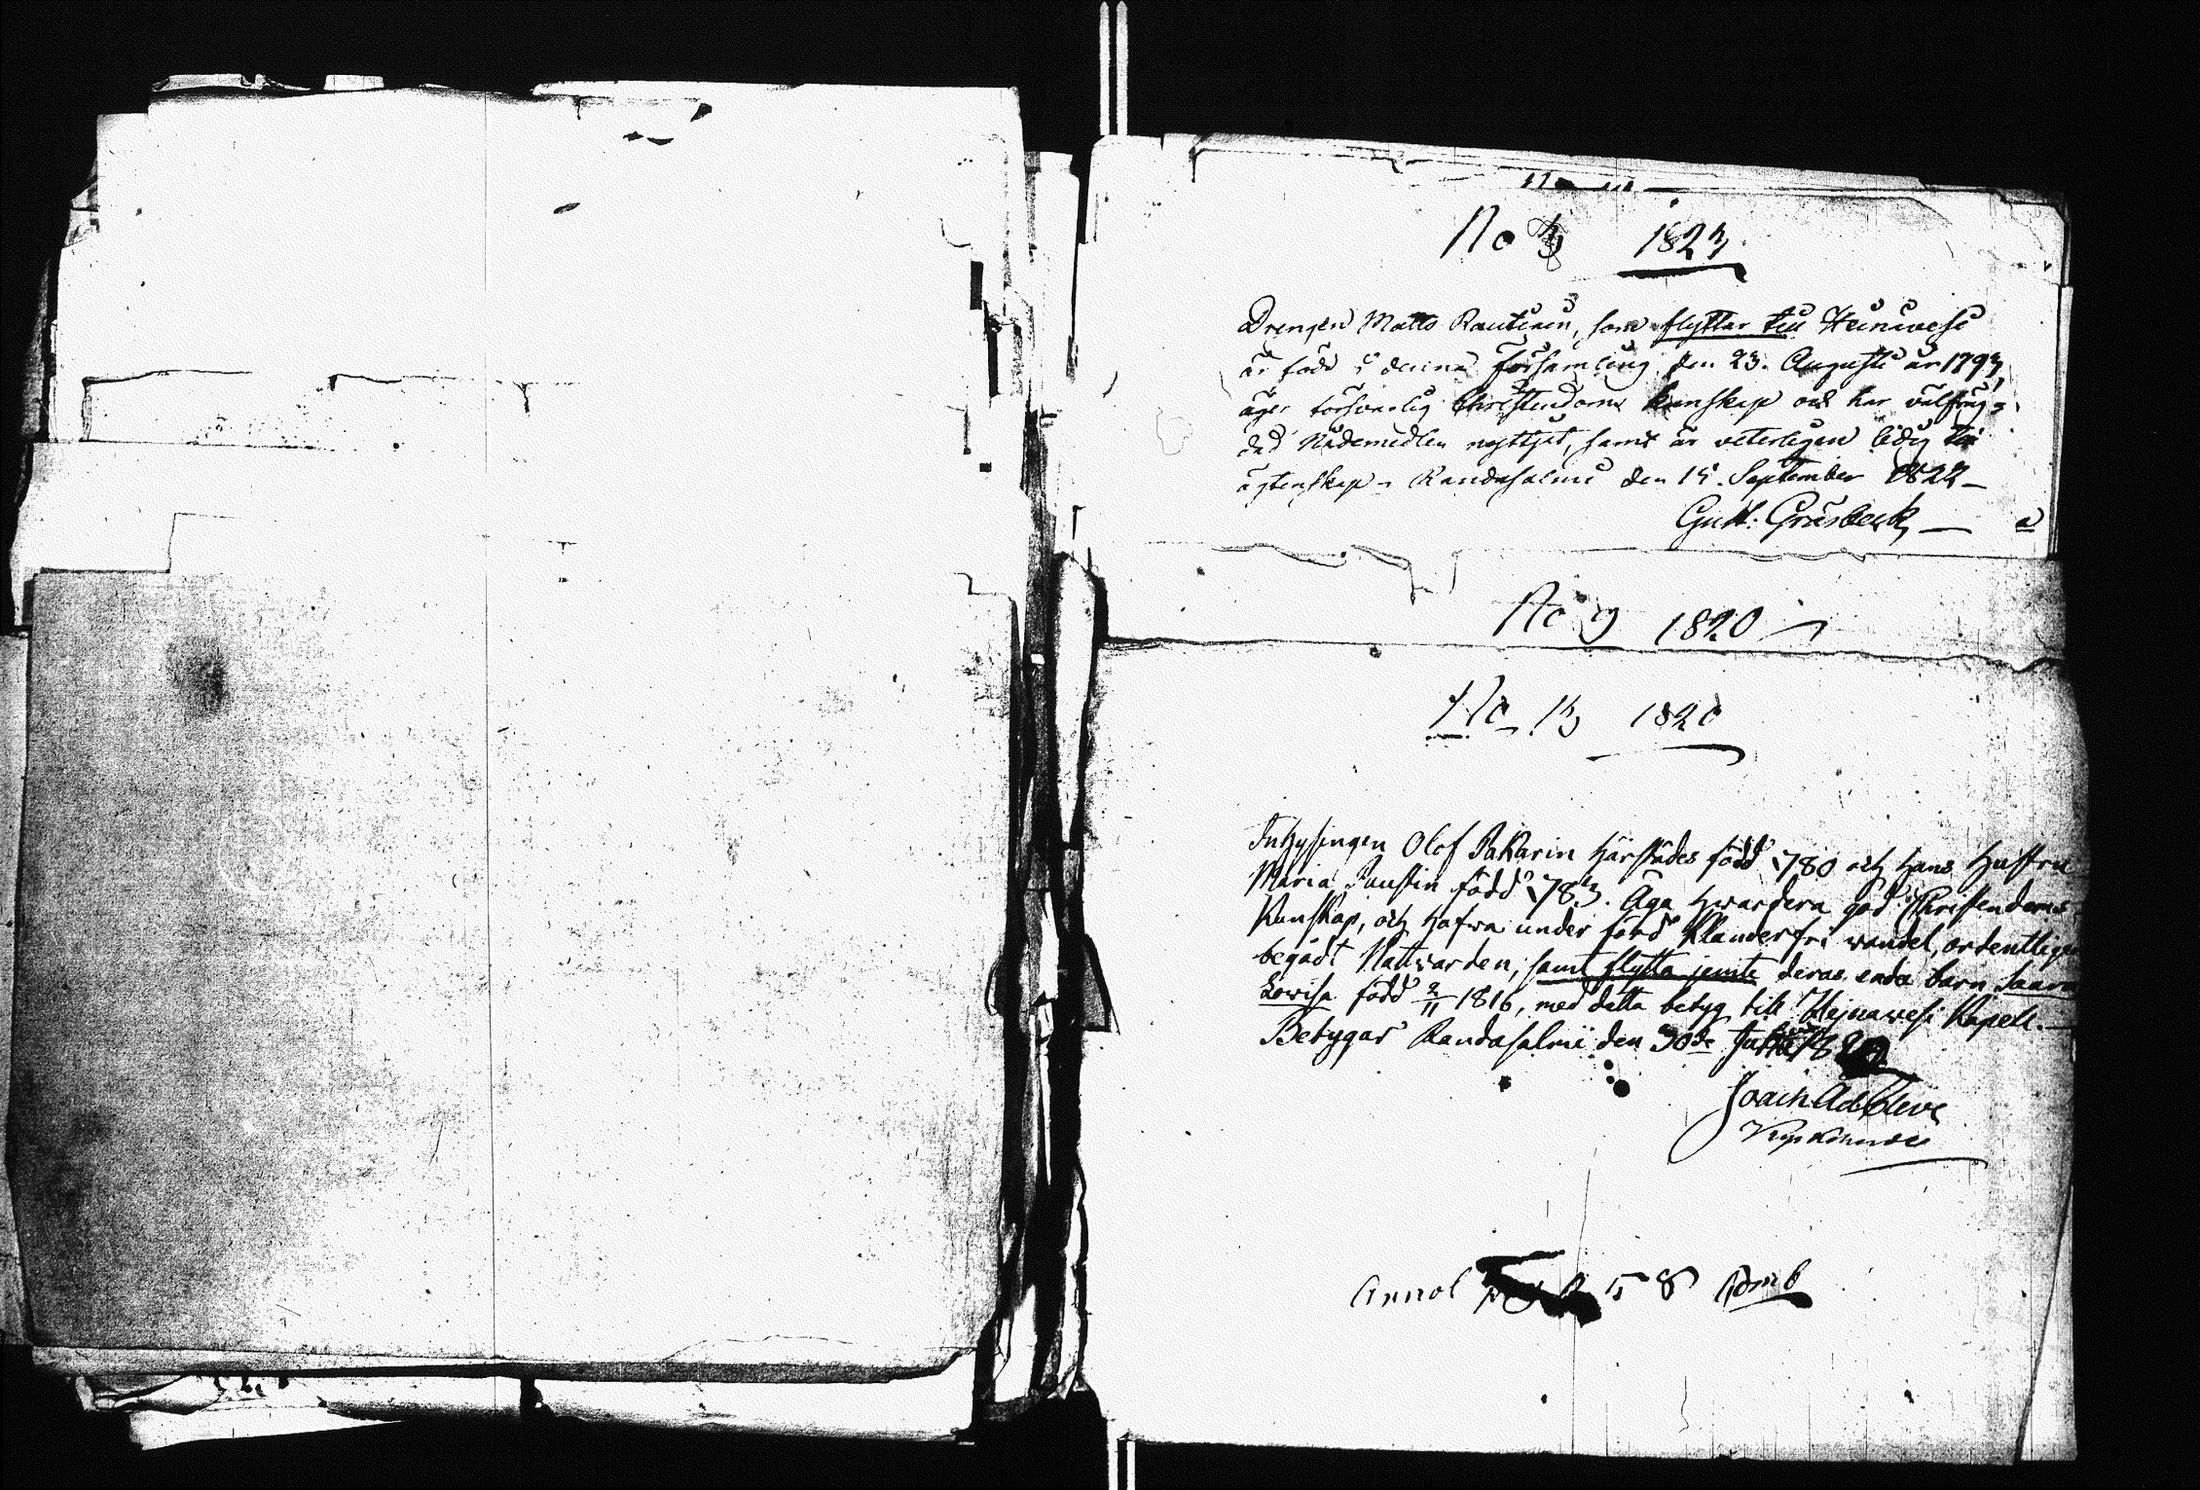 No 3 1823
Drengen Matts Rautiain, som flyttar till Heinävesi
är född i denna församling den 23. Augusti år 1793,
äger försvarlig Christendoms kunskap och har välfräg-
dad Nådemedlen nyttjat, samt är veterligen ledig till
ägtenskap. Randasalmi den 15. September 1822
Gust: Gräsbeck
No 9 1820
No 13 1820
Inhysingen Olof Pakarin härstädes född 1780 och hans Hustru
Maria Faustin född 1783. Äga hwardera god Christendoms
Kunskap, och hafva under förd Klanderfri wandel, ordentligen
begådt Nattwarden, samt flytta jemte deras enda barn Saara
Lowisa född 2/11 1816, med detta betyg till Heinawesi Kapell.
Betygar Randasalmi den 30de
Joach Ad Cleve
Annot 58